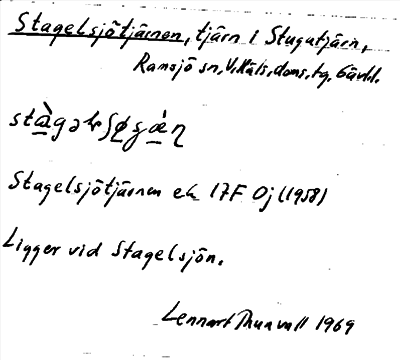 Stagelsjötjärnen, tjärn i Stugutjärn,
Ramsjö sn, V. Häls. doms. tg, Gävl.
Stagelsjötjärnen ek 17F 0j (1958)
Ligger vid Stagelsjön.
Lennart Thunvall 1969